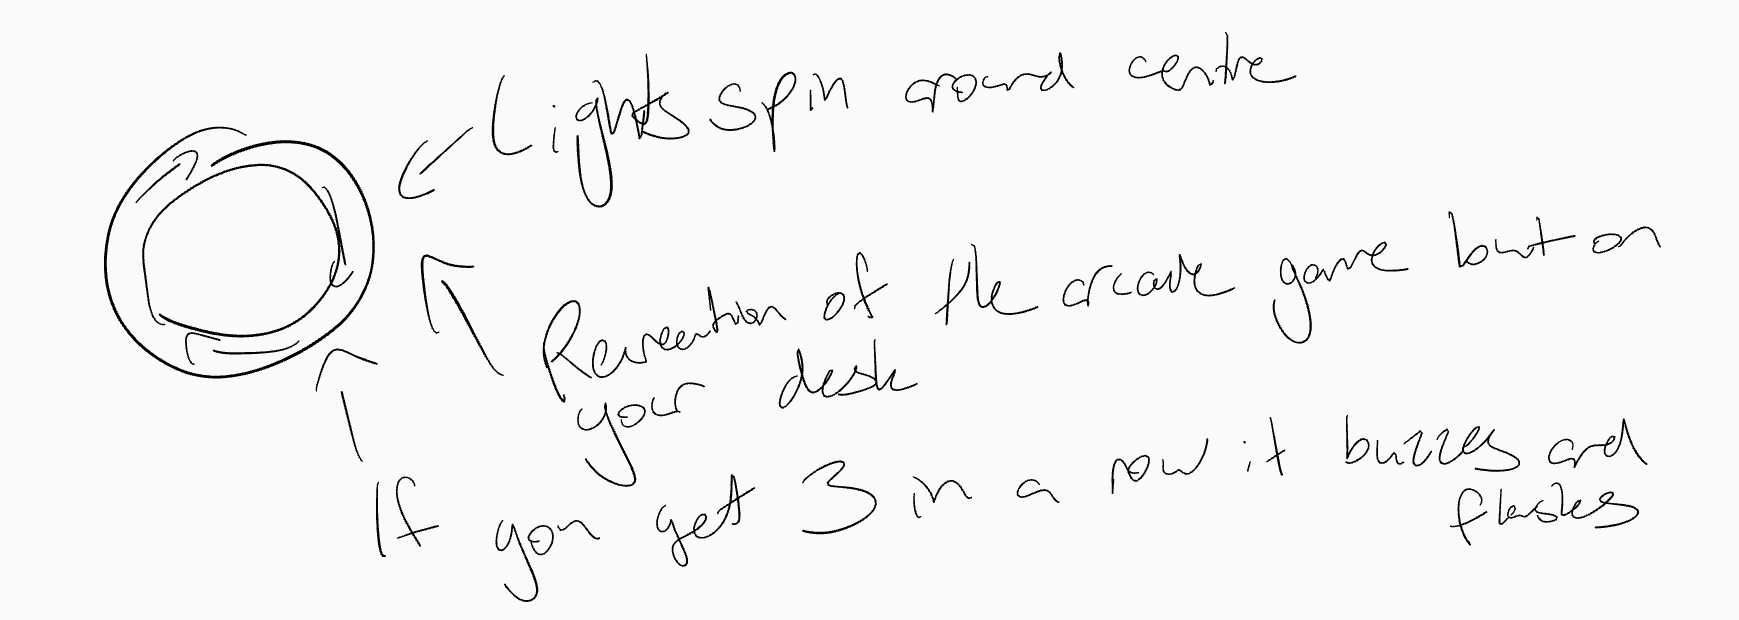 Lights spin around centre
Recreation of the arcade game but on
your desk
If you get 3 in a row it buzzes and
flashes